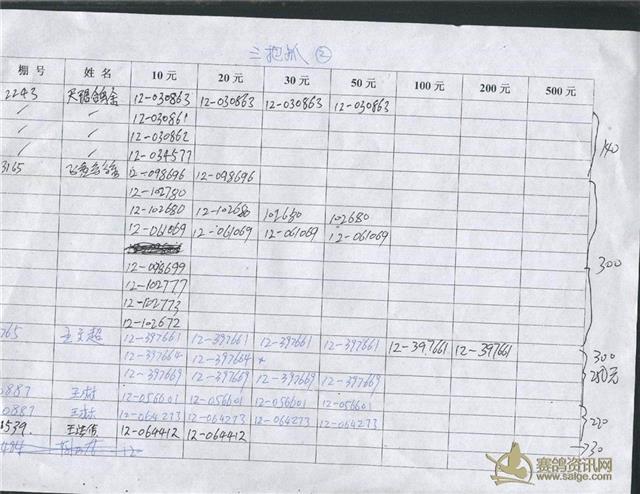 三抱抓 ②
棚号 姓名 10元 20元 30元 50元 100元 200元 500元
2243 天 12-030863 12-030863 12-030863 12-030863
〃 〃 12-030861
〃 〃 12-030862
〃 〃 12-034577 140
3165 12-098696 12-098696
12-102780
12-102680 12-102680 102680 102680
12-061069 12-061069 12-061069 12-061069
12-098699 300
12-102777
12-102773
12-102672
765 王文超 12-397661 12-397661 12-397661 12-397661 12-397661 12-397661 300
12-397664 12-397664
12-397669 12-397669 12-397669 12-397669
0887 12-056601 12-056601 12-056601 12-056601
0887 12-064273 12-064273 12-064273 12-064273 220
1539. 12-064412 12-064412 30
赛鸽资讯网
www.saige.com